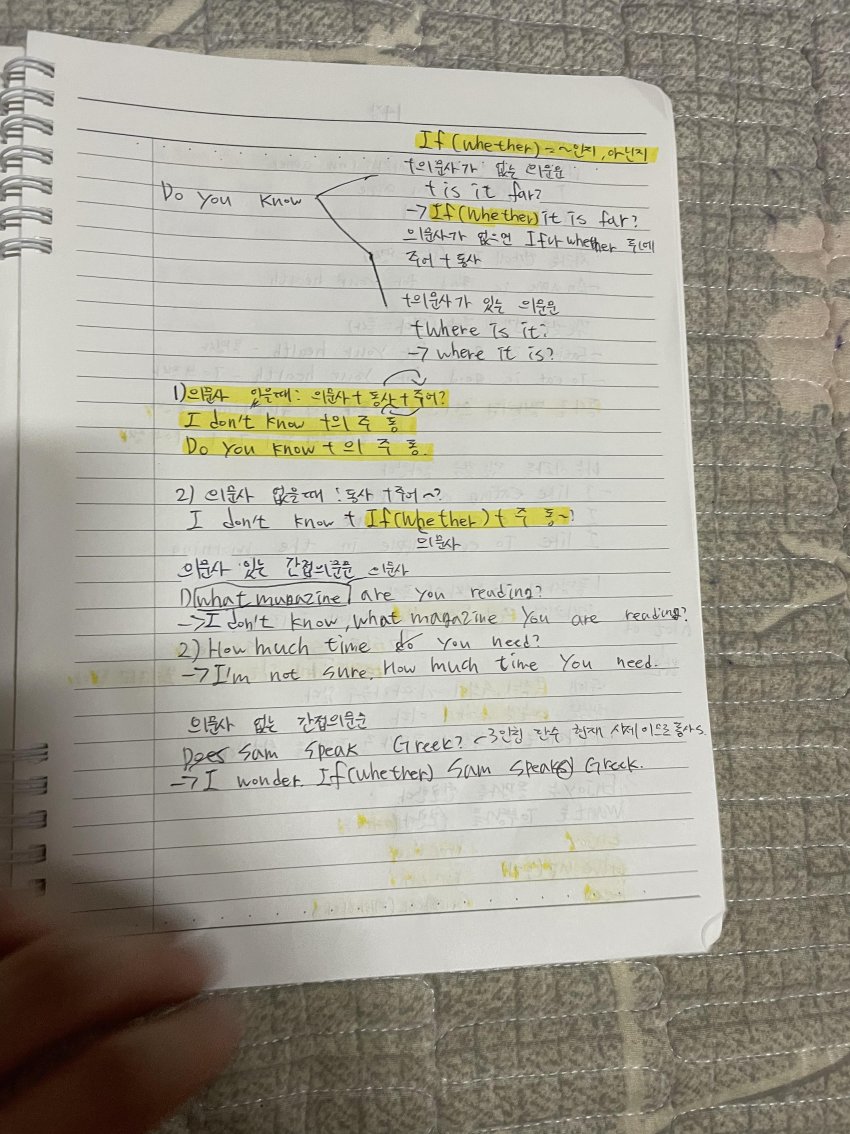 If (whether) = ~인지, 아닌지
Do you know
+의문사가 없는 의문문
+ is it far?
-> If(whether) it is far?
의문사가 없으면 If나 whether 뒤에
주어 + 동사
+의문사가 있는 의문문
+ Where is it?
-> where it is?
1) 의문사 있을때: 의문사 + 동사 + 주어?
I don't know +의 주 동
Do you know + 의 주 동.
2) 의문사 없을때 : 동사 +주어~?
I don't know + If(whether) + 주 동~?
의문사
의문사 있는 간접의문문 의문사
1) what mugazine are you reading?
-> I don't know, what magazine you are reading?
2) How much time do you need?
-> I'm not sure, How much time you need.
의문사 없는 간접의문순
Does sam speak Greek? 3인칭 단수 현재 시제이므로 동사s
-> I wonder. If(whether) Sam speak(s) Greek.